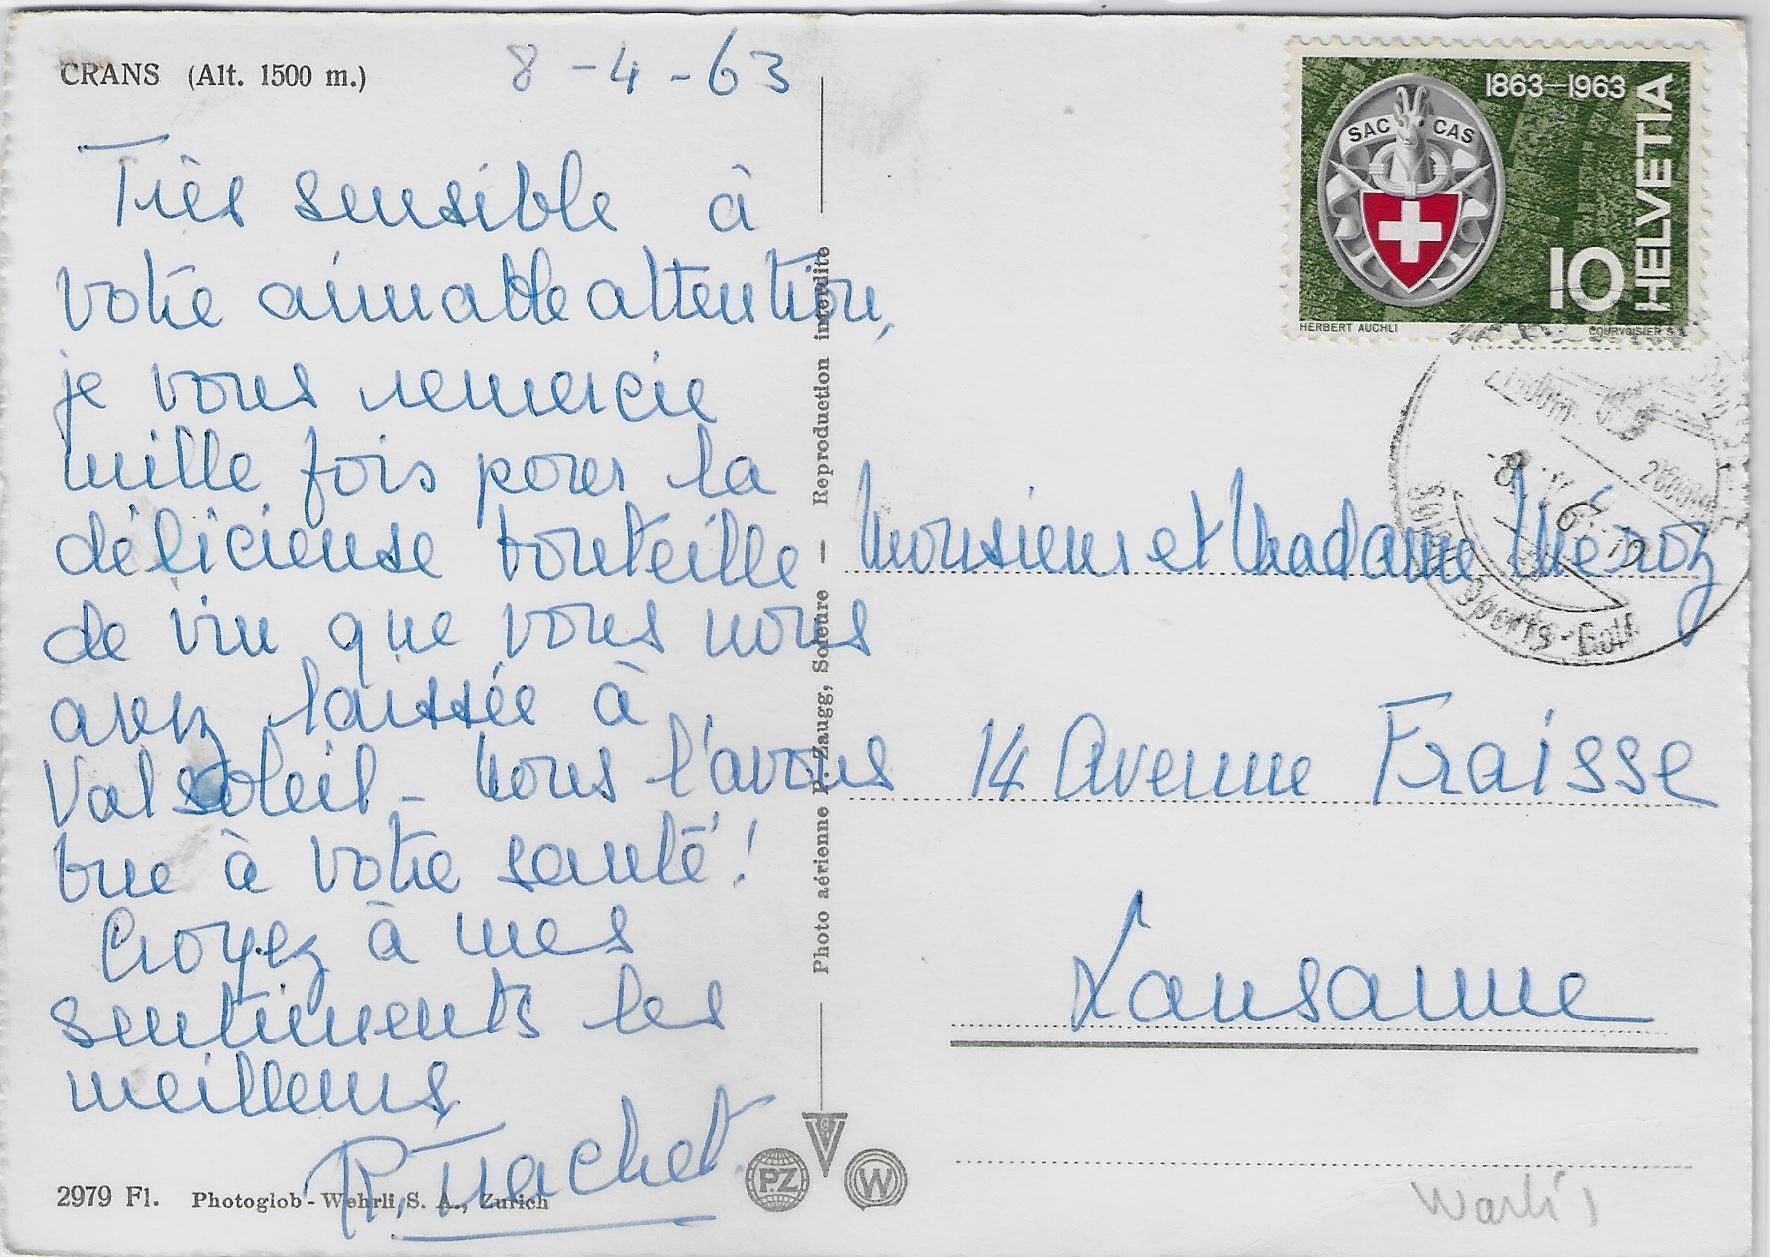 CRANS (Alt. 1500 m.)
8-4-63
Très sensible à
votre aimable attention,
je vous remercie
mille fois pour la
délicieuse bouteille
de vin que vous nous
avez laissée à
Valsoleil - Nous l'avons
bue à votre santé !
Croyez à mes
sentiments les
meilleurs
R. Trachet
2979 Fl. Photoglob-Wehrli S. A., Zurich
Photo aérienne P. Zaugg, Soleure — Reproduction interdite
PZ
W
1863–1963
SAC CAS
HELVETIA
10
HERBERT AUCHLI
COURVOISIER S.A.
Sports-Golf
Monsieur et Madame Méroz
14 Avenue Fraisse
Lausanne